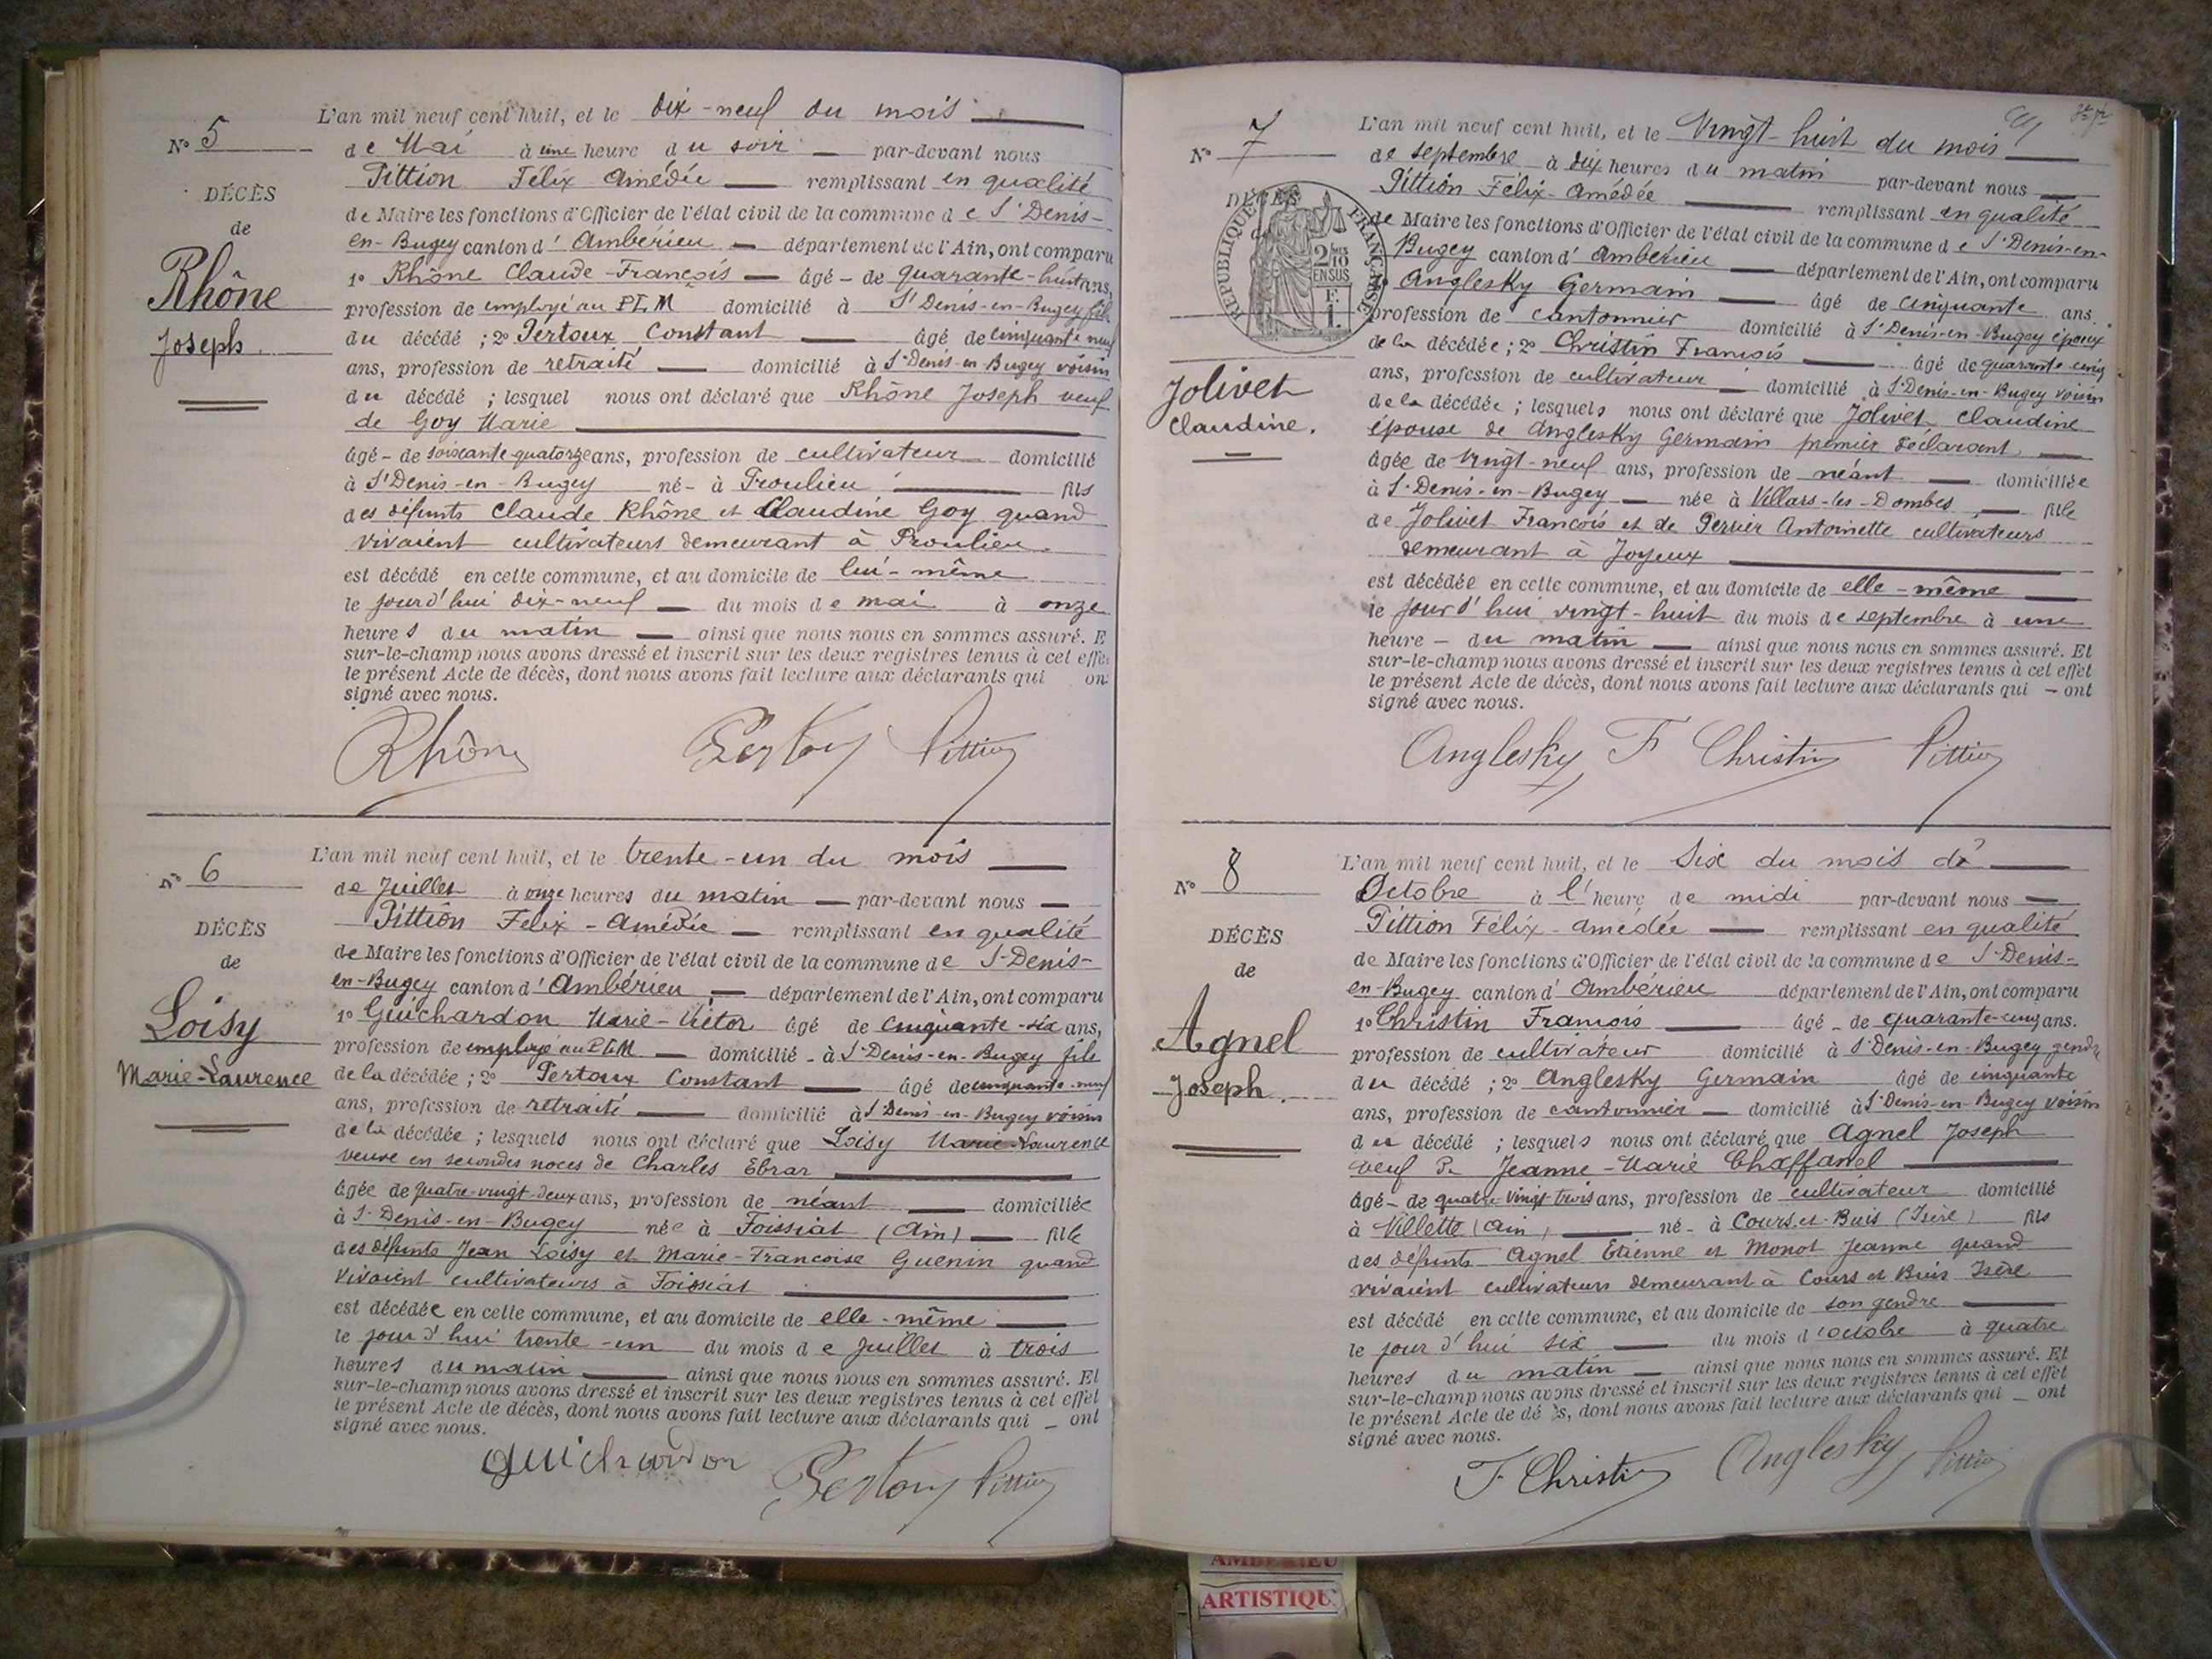 N° 5
DÉCÈS
de
Rhône
Joseph.
L'an mil neuf cent huit, et le dix-neuf du mois
de Mai à une heure du soir par-devant nous
Pittion Félix Amédée remplissant en qualité
de Maire les fonctions d'Officier de l'état civil de la commune de St Denis-
en-Bugey canton d'Ambérieu département de l'Ain, ont comparu
1° Rhône Claude-François âgé de quarante-huit ans,
profession de employé au PLM domicilié à St Denis-en-Bugey fils
du décédé ; 2° Pertoux Constant âgé de cinquante neuf
ans, profession de retraité domicilié à St Denis-en-Bugey voisin
du décédé ; lesquel nous ont déclaré que Rhône Joseph veuf
de Goy Marie
âgé de soixante quatorze ans, profession de cultivateur domicilié
à St Denis-en-Bugey né à Proulieu fils
des défunts Claude Rhône et Claudine Goy quand
vivaient cultivateurs demeurant à Proulieu
est décédé en cette commune, et au domicile de lui-même
le jourd'hui dix-neuf du mois de mai à onze
heures du matin ainsi que nous nous en sommes assuré. E
sur-le-champ nous avons dressé et inscrit sur les deux registres tenus à cet effe
le présent Acte de décès, dont nous avons fait lecture aux déclarants qui on
signé avec nous.
Rhône Pertoux Pittion
N° 6
DÉCÈS
de
Loisy
Marie-Laurence
L'an mil neuf cent huit, et le trente-un du mois
de Juillet à onze heures du matin par-devant nous
Pittion Félix-Amédée remplissant en qualité
de Maire les fonctions d'Officier de l'état civil de la commune de St Denis-
en-Bugey canton d'Ambérieu département de l'Ain, ont comparu
1° Guichardon Marie-Victor âgé de cinquante-six ans,
profession de employé au PLM domicilié à St Denis-en-Bugey fils
de la décédée ; 2° Pertoux Constant âgé de cinquante-neuf
ans, profession de retraité domicilié à St Denis-en-Bugey voisin
de la décédée ; lesquels nous ont déclaré que Loisy Marie-Laurence
veuve en secondes noces de Charles Ebrar
âgée de quatre-vingt-deux ans, profession de néant domiciliée
à St Denis-en-Bugey née à Foissiat (Ain) fille
des défunts Jean Loisy et Marie-Françoise Guenin quand
vivaient cultivateurs à Foissiat
est décédée en cette commune, et au domicile de elle-même
le jour d'hui trente-un du mois de Juillet à trois
heures du matin ainsi que nous nous en sommes assuré. Et
sur-le-champ nous avons dressé et inscrit sur les deux registres tenus à cet effet
le présent Acte de décès, dont nous avons fait lecture aux déclarants qui ont
signé avec nous.
Guichardon Pertoux Pittion
N° 7
DÉCÈS
RÉPUBLIQUE FRANÇAISE
2/10 EN SUS
F. 1.
Jolivet
Claudine.
L'an mil neuf cent huit, et le Vingt-huit du mois
de septembre à dix heures du matin par-devant nous
Pittion Félix-Amédée remplissant en qualité
de Maire les fonctions d'Officier de l'état civil de la commune de St Denis-en-
Bugey canton d'Ambérieu département de l'Ain, ont comparu
1° Anglesky Germain âgé de cinquante ans
profession de cantonnier domicilié à St Denis-en-Bugey époux
de la décédée ; 2° Christin François âgé de quarante-cinq
ans, profession de cultivateur domicilié à St Denis-en-Bugey voisin
de la décédée ; lesquels nous ont déclaré que Jolivet Claudine
épouse de Anglesky Germain premier déclarant
âgée de vingt-neuf ans, profession de néant domiciliée
à St Denis-en-Bugey née à Villars-les-Dombes fille
de Jolivet François et de Perrier Antoinette cultivateurs
demeurant à Joyeux
est décédée en cette commune, et au domicile de elle-même
le jour d'hui vingt-huit du mois de septembre à une
heure du matin ainsi que nous nous en sommes assuré. Et
sur-le-champ nous avons dressé et inscrit sur les deux registres tenus à cet effet
le présent Acte de décès, dont nous avons fait lecture aux déclarants qui ont
signé avec nous.
Anglesky F Christin Pittion
N° 8
DÉCÈS
de
Agnel
Joseph.
L'an mil neuf cent huit, et le Six du mois d'
Octobre à l'heure de midi par-devant nous
Pittion Félix-Amédée remplissant en qualité
de Maire les fonctions d'Officier de l'état civil de la commune de St Denis-
en-Bugey canton d'Ambérieu département de l'Ain, ont comparu
1° Christin François âgé de quarante-cinq ans.
profession de cultivateur domicilié à St Denis-en-Bugey gendre
du décédé ; 2° Anglesky Germain âgé de cinquante
ans, profession de cantonnier domicilié à St Denis-en-Bugey voisin
du décédé ; lesquels nous ont déclaré que Agnel Joseph
veuf de Jeanne-Marie Chaffanel
âgé de quatre-vingt-trois ans, profession de cultivateur domicilié
à Villette (Ain) né à Cours-et-Buis (Isère) fils
des défunts Agnel Etienne et Monot Jeanne quand
vivaient cultivateurs demeurant à Cours et Buis Isère
est décédé en cette commune, et au domicile de son gendre
le jour d'hui six du mois d'octobre à quatre
heures du matin ainsi que nous nous en sommes assuré. Et
sur-le-champ nous avons dressé et inscrit sur les deux registres tenus à cet effet
le présent Acte de dé ès, dont nous avons fait lecture aux déclarants qui ont
signé avec nous.
F Christin Anglesky Pittion
AMBÉRIEU
ARTISTIQU